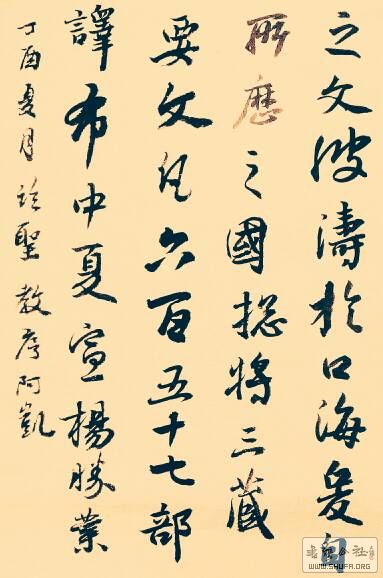 之文波濤於口海爰自
所歷之國揔將三藏
要文凡六百五十七部
譯布中夏宣揚勝業
丁酉夏月 臨聖教序阿凱
書法公社
WWW.SHUFA.ORG